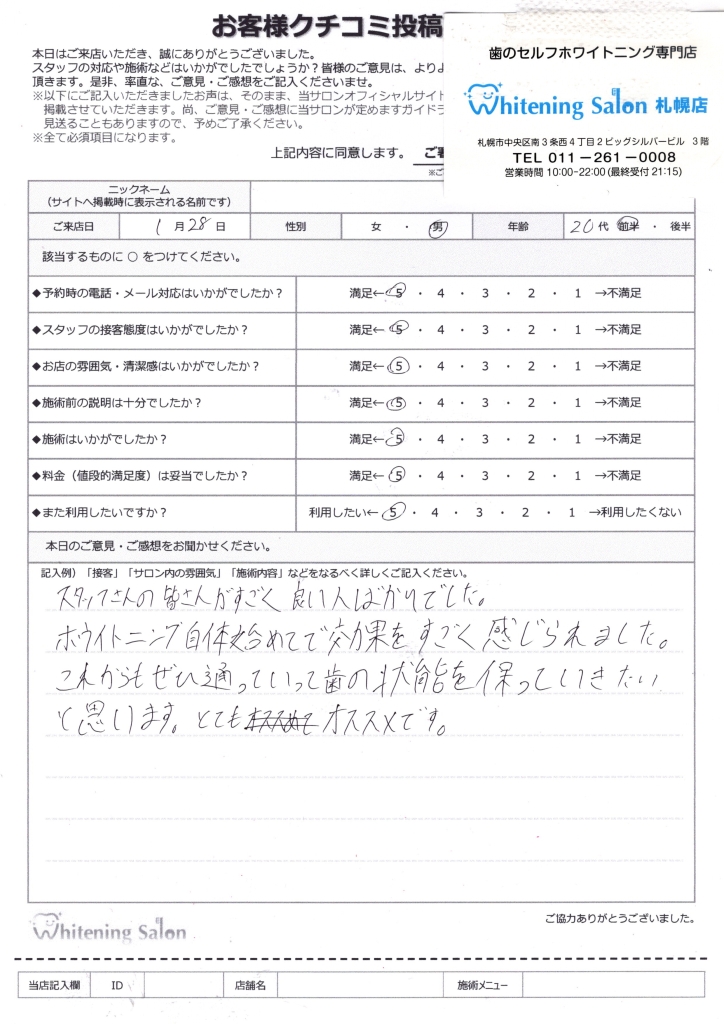 お客様クチコミ投稿
本日はご来店いただき、誠にありがとうございました。
スタッフの対応や施術などはいかがでしたでしょうか？皆様のご意見は、よりよ
頂きます。是非、率直な、ご意見・ご感想をご記入くださいませ。
※以下にご記入いただきましたお声は、そのまま、当サロンオフィシャルサイト
掲載させていただきます。尚、ご意見・ご感想に当サロンが定めますガイドラ
見送ることもありますので、予めご了承ください。
※全て必須項目になります。
上記内容に同意します。 ご署
※ご
歯のセルフホワイトニング専門店
Whitening Salon 札幌店
札幌市中央区南3条西4丁目2ビッグシルバービル 3階
TEL 011-261-0008
営業時間 10:00-22:00 (最終受付 21:15)
ニックネーム
（サイトへ掲載時に表示される名前です）
ご来店日 1月28日 性別 女 ・ 男 年齢 20代 前半 ・ 後半
該当するものに ○ をつけてください。
◆予約時の電話・メール対応はいかがでしたか？ 満足←5 ・ 4 ・ 3 ・ 2 ・ 1 →不満足
◆スタッフの接客態度はいかがでしたか？ 満足←5 ・ 4 ・ 3 ・ 2 ・ 1 →不満足
◆お店の雰囲気・清潔感はいかがでしたか？ 満足←5 ・ 4 ・ 3 ・ 2 ・ 1 →不満足
◆施術前の説明は十分でしたか？ 満足←5 ・ 4 ・ 3 ・ 2 ・ 1 →不満足
◆施術はいかがでしたか？ 満足←5 ・ 4 ・ 3 ・ 2 ・ 1 →不満足
◆料金（値段的満足度）は妥当でしたか？ 満足←5 ・ 4 ・ 3 ・ 2 ・ 1 →不満足
◆また利用したいですか？ 利用したい←5 ・ 4 ・ 3 ・ 2 ・ 1 →利用したくない
本日のご意見・ご感想をお聞かせください。
記入例）「接客」「サロン内の雰囲気」「施術内容」などをなるべく詳しくご記入ください。
スタッフさんの皆さんがすごく良い人ばかりでした。
ホワイトニング自体始めてで効果をすごく感じられました。
これからもぜひ通っていって歯の状態を保っていきたい
と思います。とてもオススメです。
ご協力ありがとうございました。
Whitening Salon
当店記入欄 ID 店舗名 施術メニュー